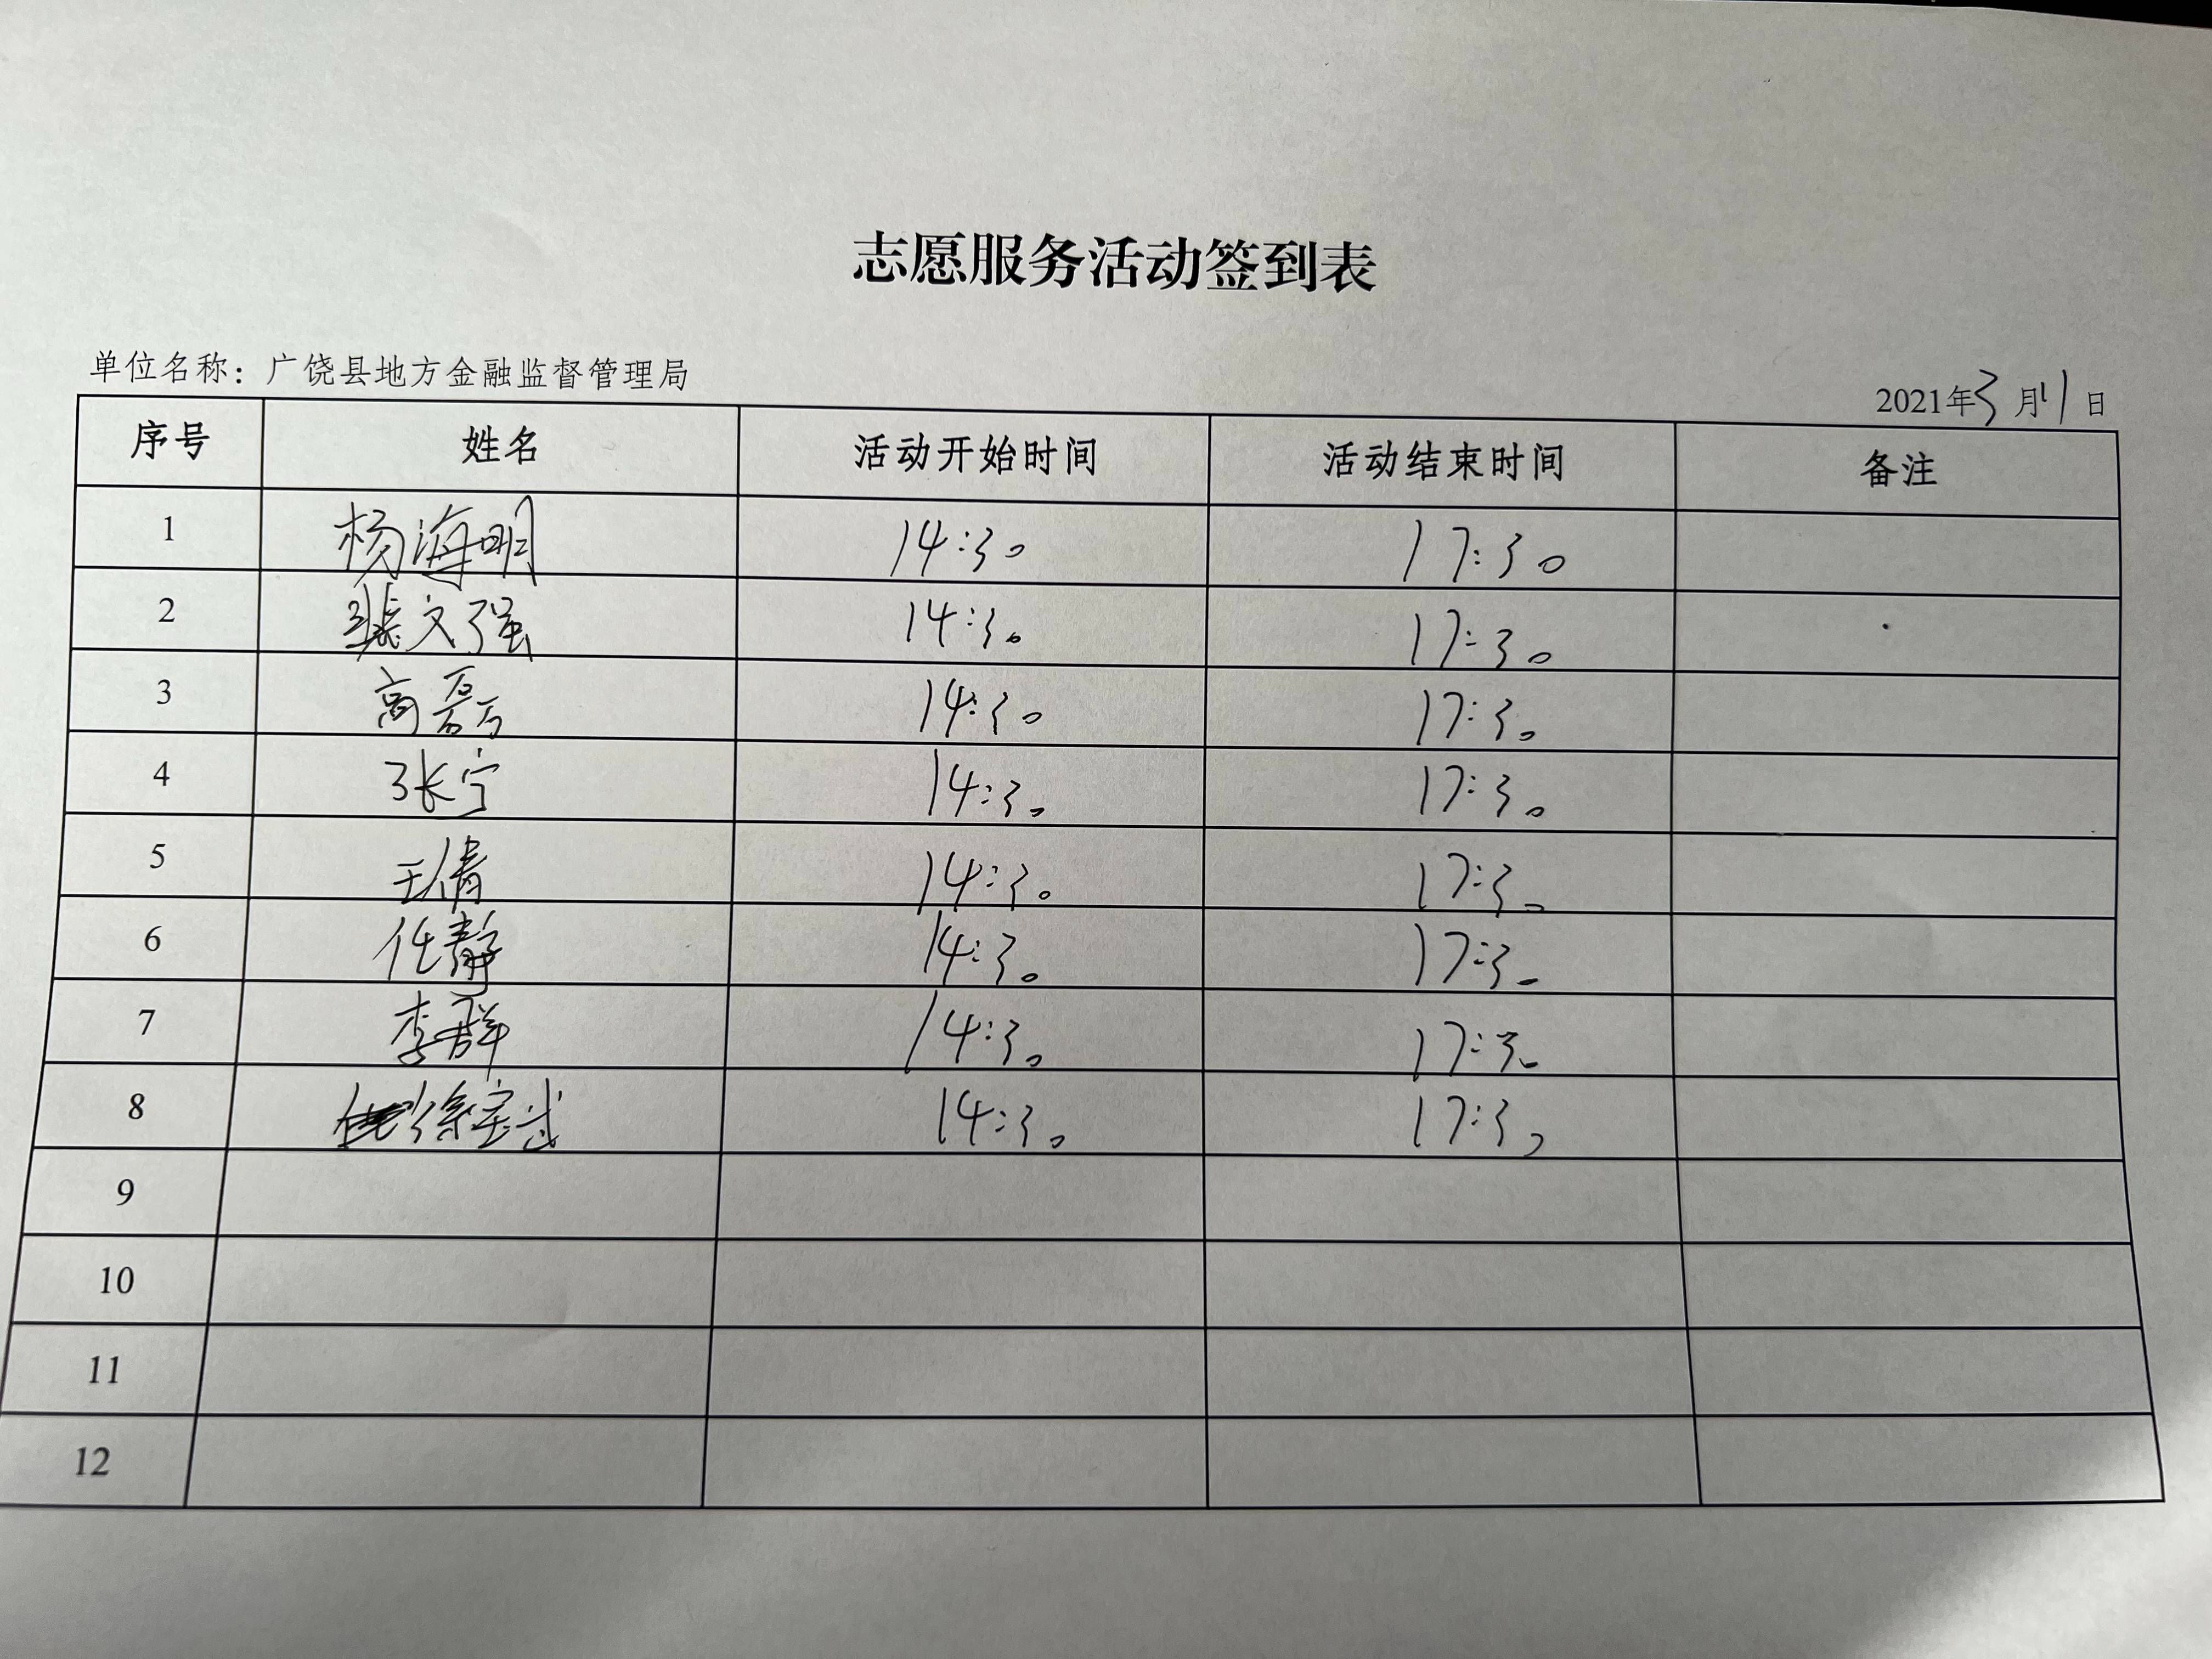 志愿服务活动签到表
单位名称：广饶县地方金融监督管理局
2021年3月11日
序号 姓名 活动开始时间 活动结束时间 备注
1 杨海明 14:30 17:30
2 裴文强 14:30 17:30
3 高磊 14:30 17:30
4 张宁 14:30 17:30
5 王倩 14:30 17:30
6 任静 14:30 17:30
7 李群 14:30 17:30
8 徐宝 14:30 17:30
9
10
11
12